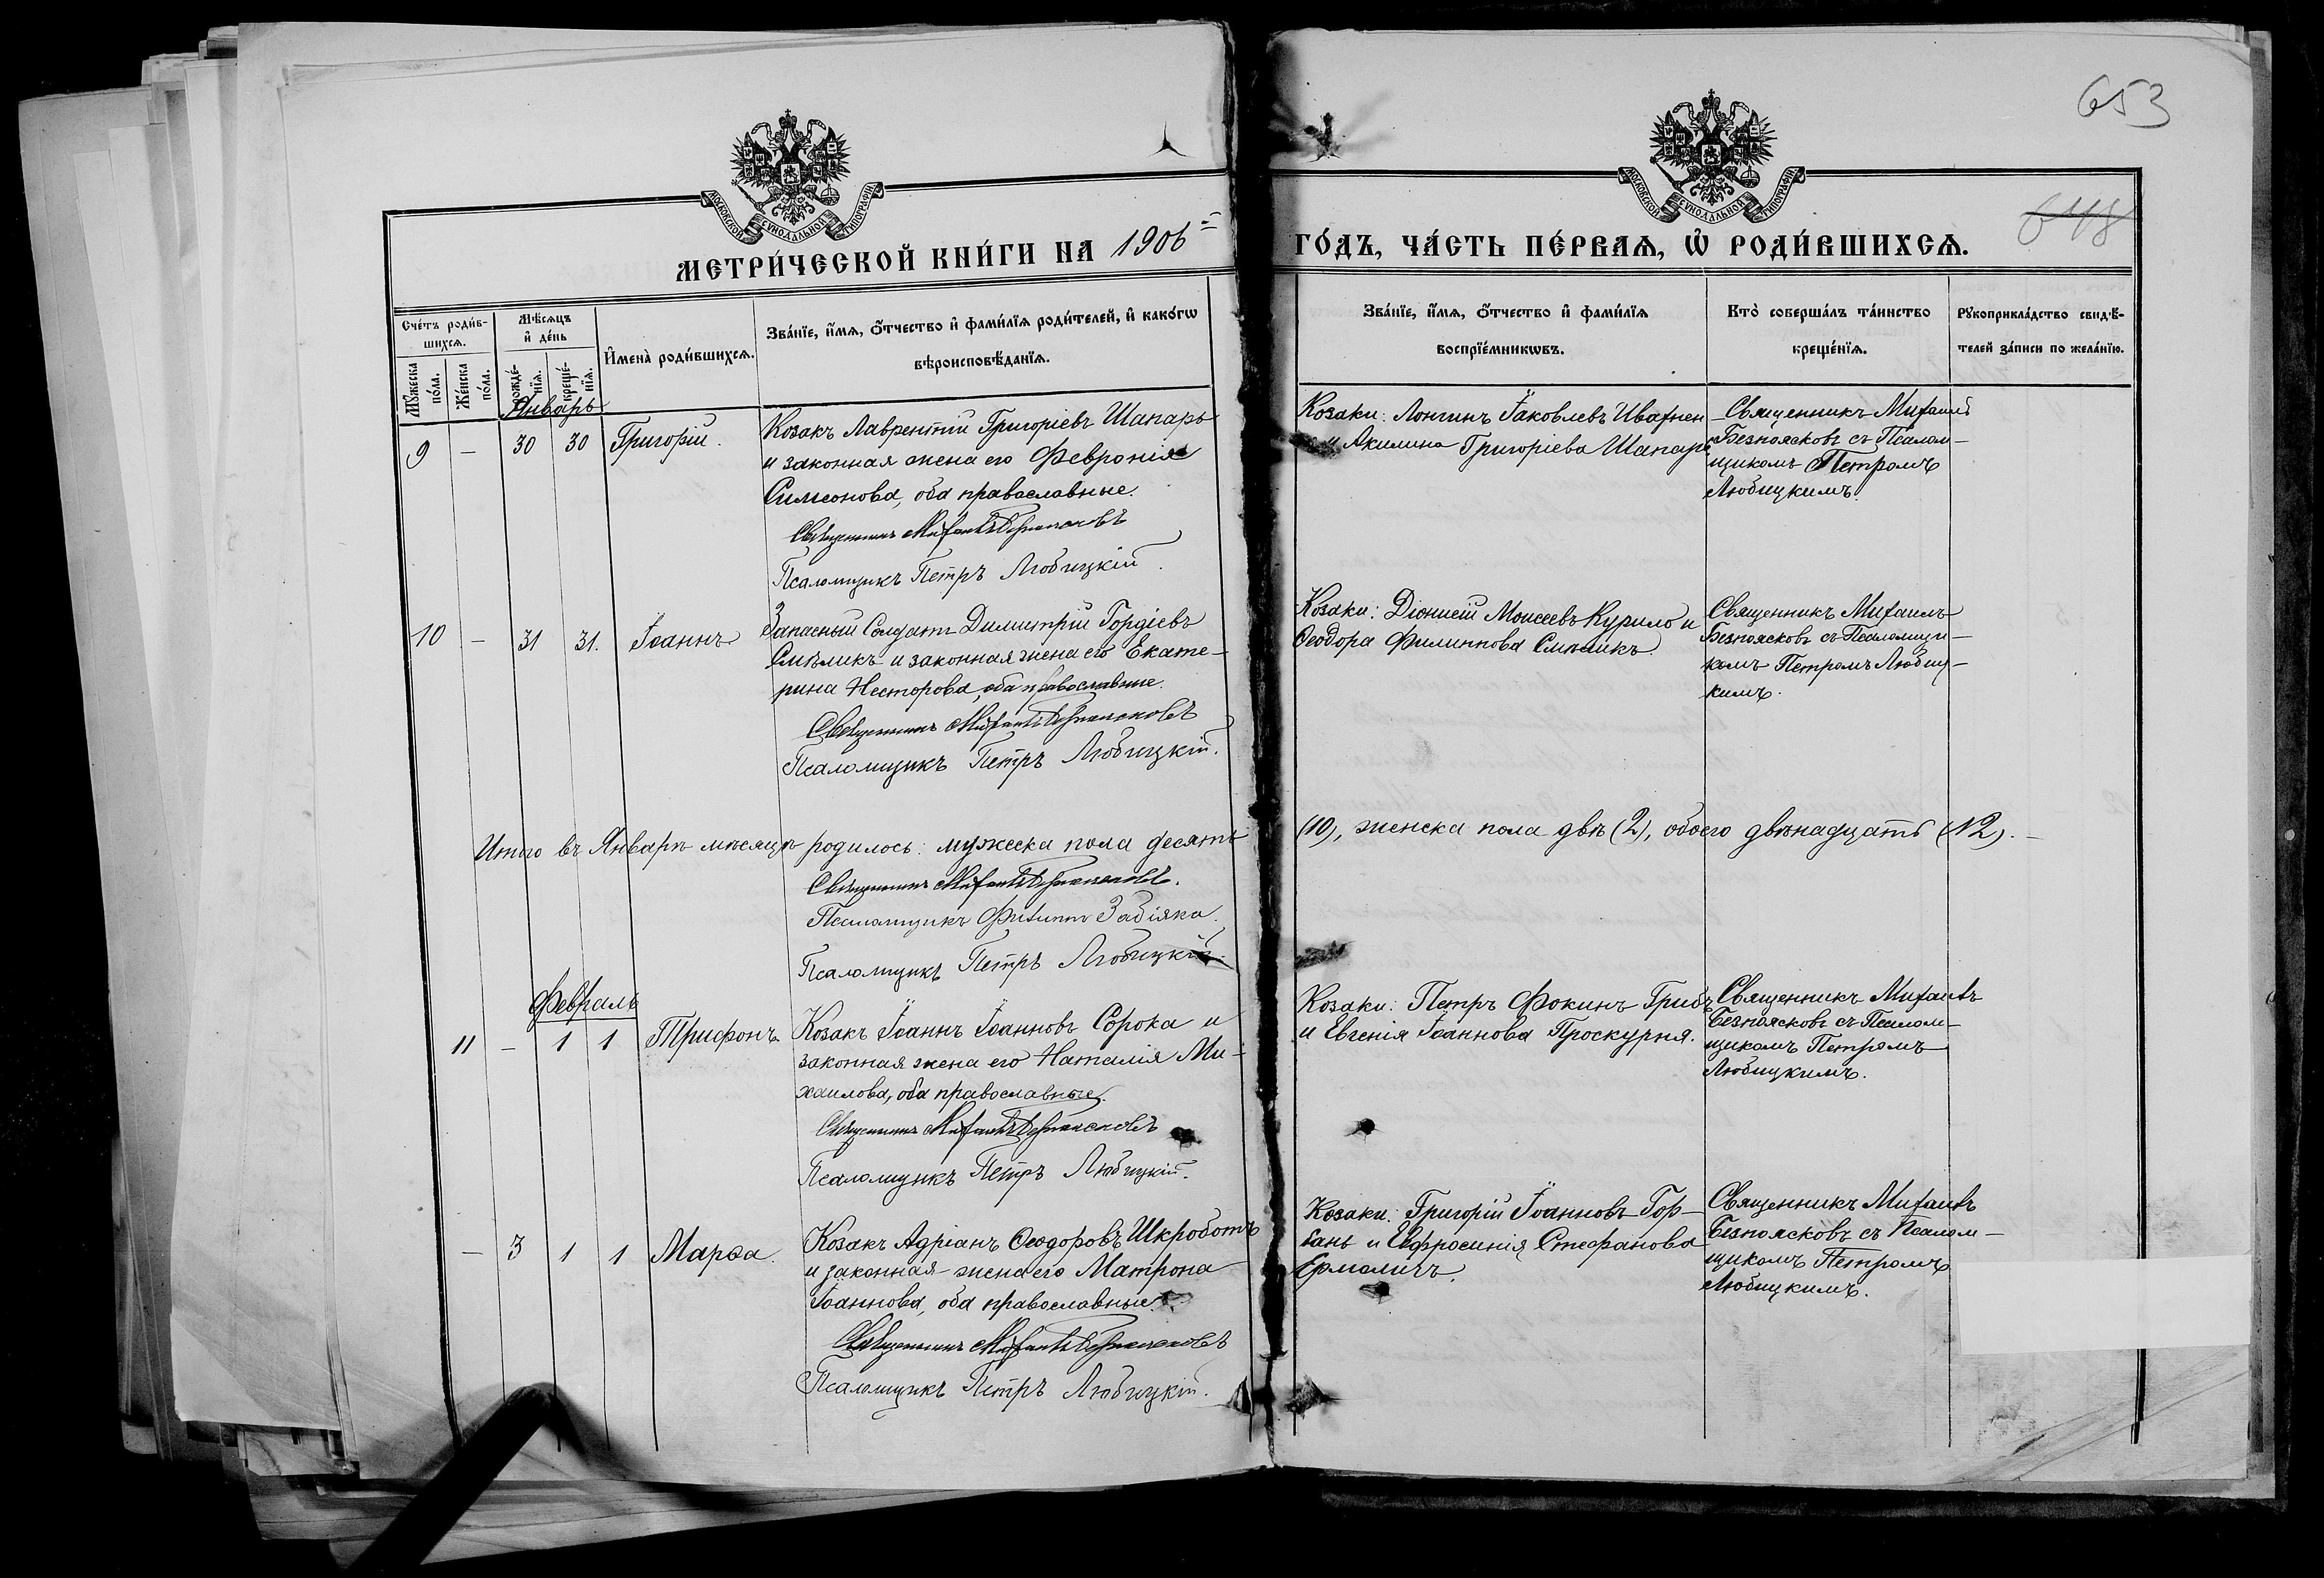 653
648
МОСКОВСКОЙ СѴНОДАЛЬНОЙ ТИПОГРАФІИ
МОСКОВСКОЙ СѴНОДАЛЬНОЙ ТИПОГРАФІИ
МЕТРИ́ЧЕСКОЙ КНИ́ГИ НА 1906 ГО́ДЪ, ЧА́СТЬ ПЕ́РВАѦ, Ѡ РОДИ́ВШИХСѦ.
Сче́тъ роди́в-
шихсѧ.
Мꙋ́жеска
по́ла.
Же́нска
по́ла.
Мѣ́сѧцъ
и҆ де́нь
рожде́-
нїѧ.
креще́-
нїѧ.
И҆мена̀ роди́вшихсѧ.
Зва́нїе, и҆́мѧ, ѻ҆́тчество и҆ фами́лїѧ роди́телей, и҆ како́гѡ
вѣроисповѣ́данїѧ.
Зва́нїе, и҆́мѧ, ѻ҆́тчество и҆ фами́лїѧ
воспрїе́мникѡвъ.
Кто̀ соверша́лъ та́инство
креще́нїѧ.
Рꙋкоприкла́дство свидѣ́-
телей за́писи по жела́нїю.
Январь
9 — 30 30 Григорій.
Козакъ Лаврентій Григоріевъ Шапарь
и законная жена его Февронія
Симеонова, оба православные.
Священникъ Михаилъ Безпоясковъ
Псаломщикъ Петръ Любицкій.
Козаки: Лонгинъ Іаковлевъ Ивахнен
и Акилина Григоріева Шапарь
Священникъ Михаилъ
Безпоясковъ съ Псалом-
щикомъ Петромъ
Любицкимъ.
10 — 31 31. Іоаннъ
Запасный Солдатъ Димитрій Гордіевъ
Смѣликъ и законная жена его Екате-
рина Несторова, оба православные.
Священникъ Михаилъ Безпоясковъ
Псаломщикъ Петръ Любицкій.
Козаки: Діонисій Моисеевъ Курило и
Ѳеодора Филиппова Смѣликъ
Священникъ Михаилъ
Безпоясковъ съ Псаломщи-
комъ Петромъ Любиц-
кимъ.
Итого въ Январѣ мѣсяцѣ родилось: мужеска пола десять (10), женска пола двѣ (2), обоего двѣнадцать (12). —
Священникъ Михаилъ Безпоясковъ.
Псаломщикъ Филиппъ Забіяка.
Псаломщикъ Петръ Любицкій.
Февраль
11 — 1 1 Трифонъ.
Козакъ Іоаннъ Іоанновъ Сорока и
законная жена его Наталія Ми-
хаилова, оба православные.
Священникъ Михаилъ Безпоясковъ
Псаломщикъ Петръ Любицкій.
Козаки: Петръ Фокинъ Грибъ
и Евгенія Іоаннова Проскурня.
Священникъ Михаилъ
Безпоясковъ съ Псалом-
щикомъ Петромъ
Любицкимъ.
— 3 1 1 Марѳа.
Козакъ Адріанъ Ѳеодоровъ Шкроботъ
и законная жена его Матрона
Іоаннова, оба православные.
Священникъ Михаилъ Безпоясковъ
Псаломщикъ Петръ Любицкій.
Козаки: Григорій Іоанновъ Гор-
бань и Евфросинія Стефанова
Ермоличъ.
Священникъ Михаилъ
Безпоясковъ съ Псалом-
щикомъ Петромъ
Любицкимъ.